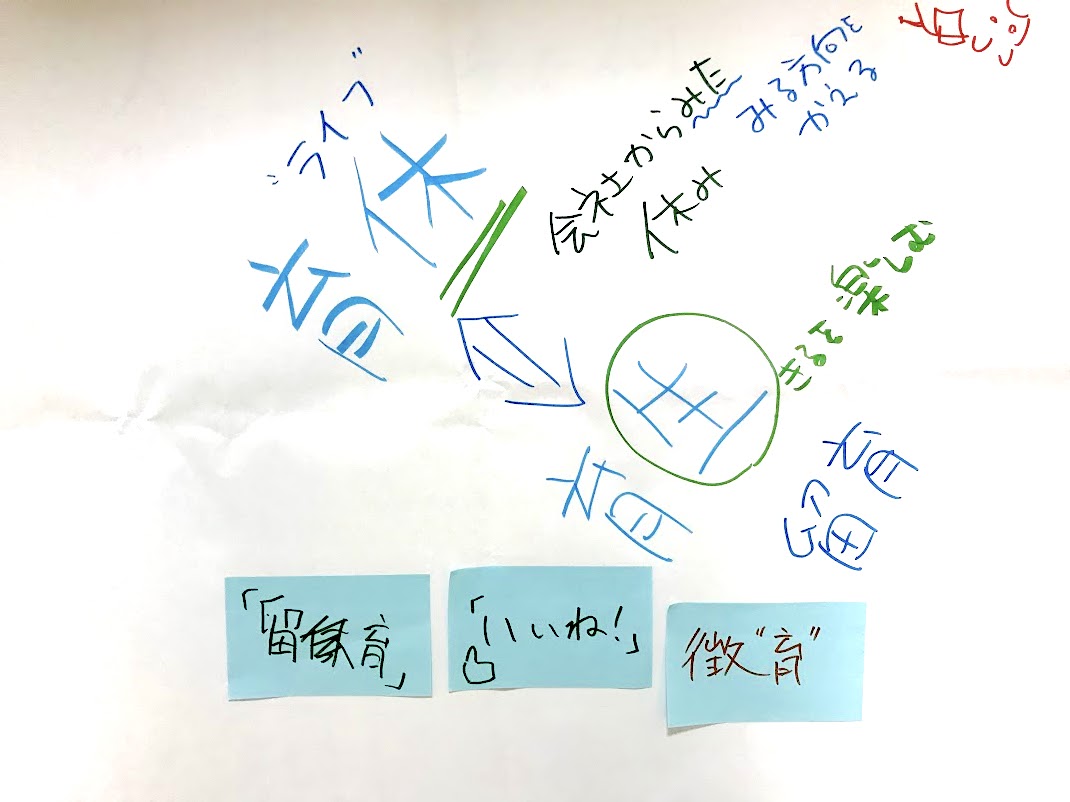 "ライフ"
育休
会社からみた
休み
みる方向を
かえる
育生
きるを楽しむ
留育
「留育」
「いいね!」
徴"育"